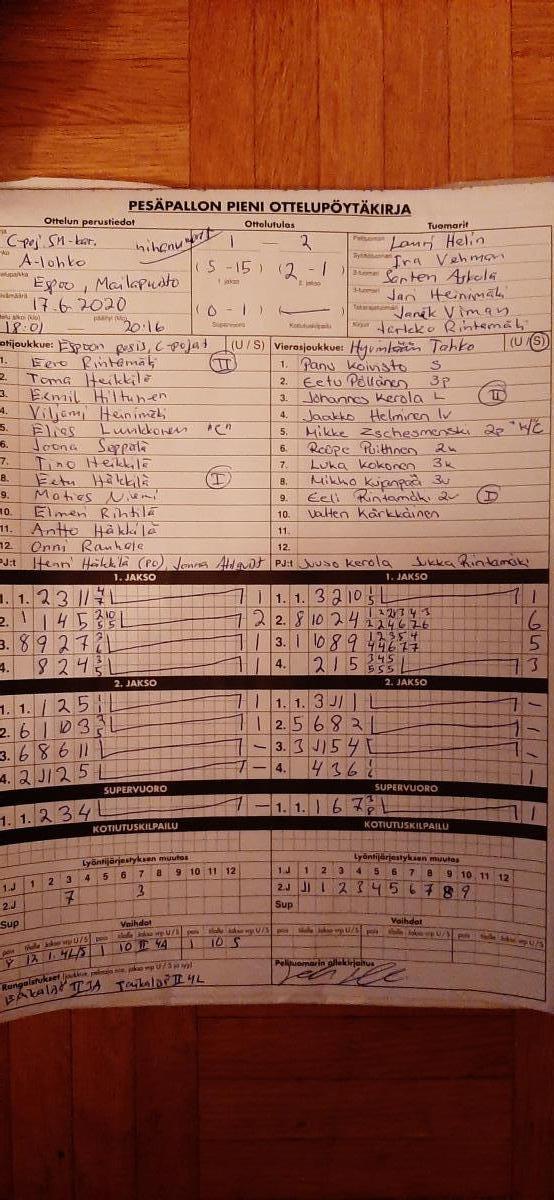 PESÄPALLON PIENI OTTELUPÖYTÄKIRJA
Ottelun perustiedot Ottelutulos Tuomarit
C-poj. SM-kar. 1 — 2 Lauri Helin
A-lohko Ira Vehman
Espoo, Mailapuisto (5-15) (2-1) Santen Askola
1. jakso 2. jakso
17.6.2020 Jari Heinimäki
(0-1) Janik Viman
18:01 20:16 Supervuoro Kotiutuskilpailu Jarkko Rintamäki
Kotijoukkue: Espoon pesis, C-pojat (U / S) Vierasjoukkue: Hyvinkään Tahko (U / S)
1. Eero Rintamäki II 1. Panu Koivisto S
2. Toma Heikkilä 2. Eetu Pöllänen 3p
3. Eemil Hiltunen 3. Johannes Kerola L II
4. Viljami Heinimäki 4. Jaakko Helminen lv
5. Elias Lunkkonen "C" 5. Mikke Zschesmenski 2p "K/C
6. Joona Seppälä 6. Roope Puithinen 2k
7. Tino Heikkilä 7. Luka Kokonen 3k
8. Eetu Häkkilä I 8. Mikko Kujanpää 3v
9. Matias Niemi 9. Eeli Rintamäki 2v I
10. Elmeri Rihtilä 10. Valtteri Kärkkäinen
11. Antto Häkkilä 11.
12. Onni Rauhala 12.
PJ:t Henri Häkkilä (PO), Janna Ahlqvist PJ:t Juuso Kerola Jukka Rintamäki
1. JAKSO 1. JAKSO
1. 1. 2 3 11 1 1. 1. 3 2 10 1
2. 1 1 4 5 2 2. 8 10 2 4 6
3. 8 9 2 7 1 3. 1 10 8 9 5
4. 8 2 4 1 4. 2 1 5 3
2. JAKSO 2. JAKSO
1. 1. 1 2 5 1 1. 1. 3 J1 1 –
2. 6 1 10 3 1 2. 5 6 8 2 –
3. 6 8 6 11 – 3. 3 J1 5 4 –
4. 2 J1 2 5 – 4. 4 3 6 1
SUPERVUORO SUPERVUORO
1. 1. 2 3 4 – 1. 1. 1 6 7 1
KOTIUTUSKILPAILU KOTIUTUSKILPAILU
Lyöntijärjestyksen muutos Lyöntijärjestyksen muutos
1.J 1 2 3 4 5 6 7 8 9 10 11 12 1.J 1 2 3 4 5 6 7 8 9 10 11 12
2.J 7 3 2.J J1 1 2 3 4 5 6 7 8 9
Sup Sup
Vaihdot Vaihdot
pois tilalle Jakso vrp U / S pois tilalle Jakso vrp U / S pois tilalle Jakso vrp U / S
12 1. 4L/S 1 10 II 4A 1 10 S
Rangaistukset (joukkue, pelaaja nro, jakso vrp U / S ja syy) Pelituomarin allekirjoitus
II 3A II 4L